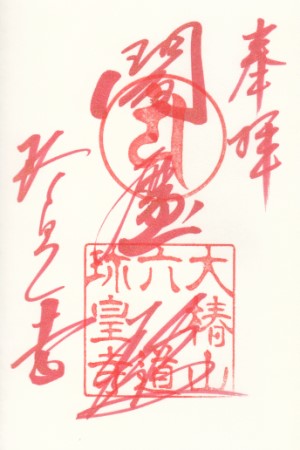 奉拝
閻魔
大椿山
六道
珍皇寺
珍皇寺